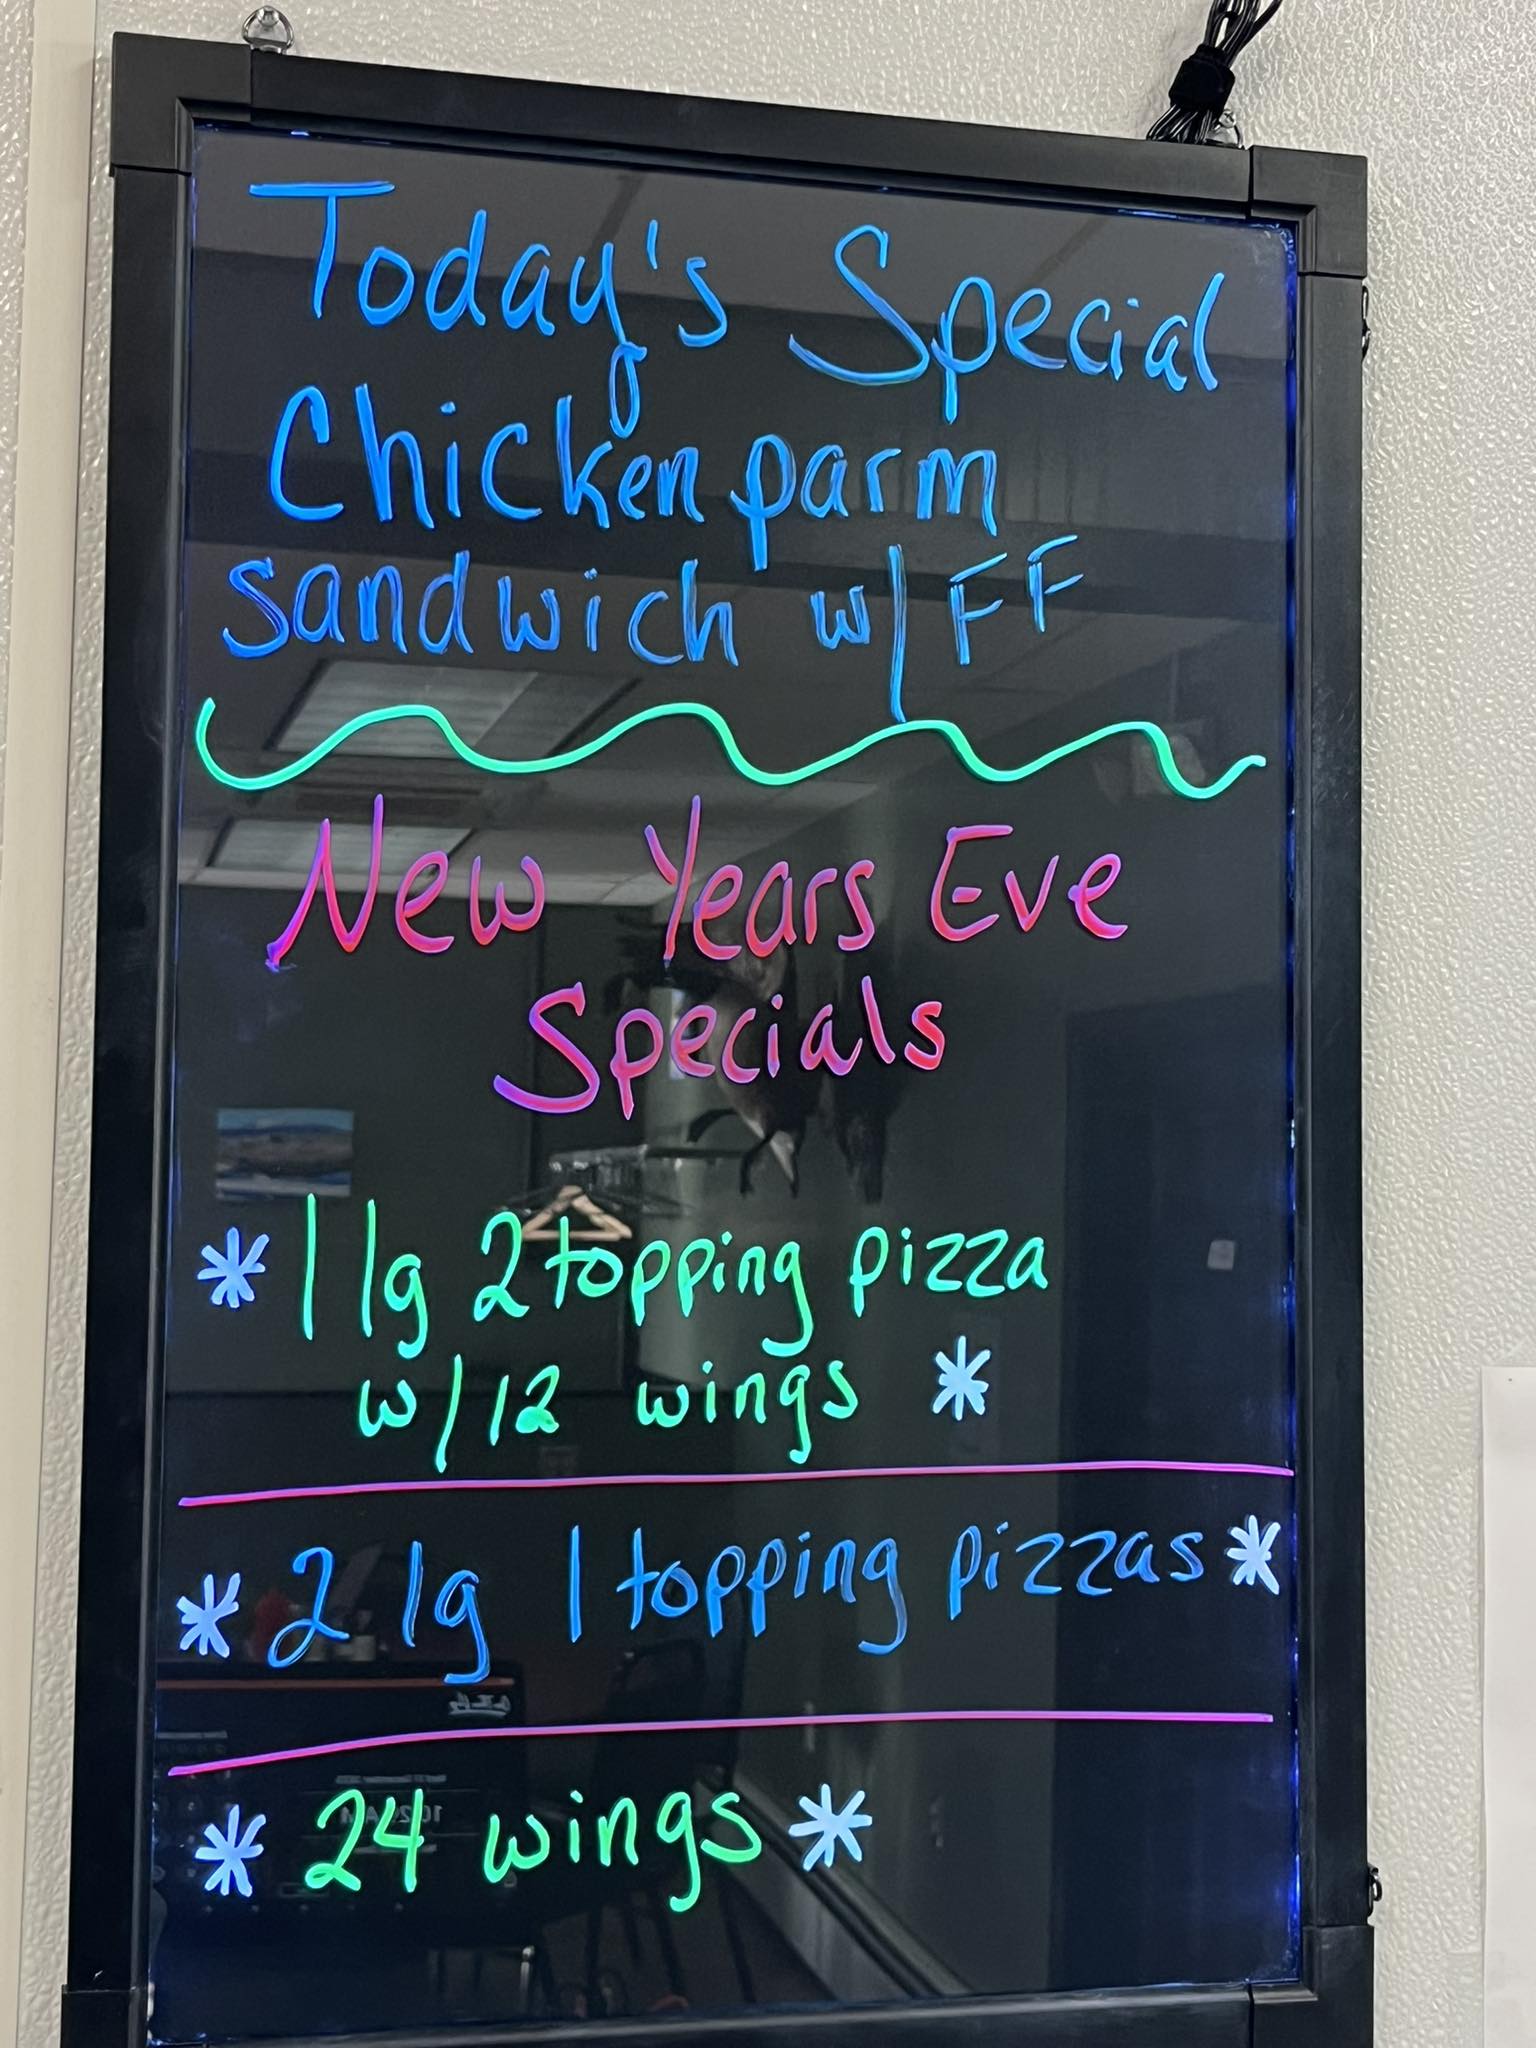 Today's Special
Chicken parm
sandwich w/ FF
New Years Eve
Specials
* 1 lg 2 topping pizza
w/ 12 wings *
* 2 lg 1 topping pizzas *
* 24 wings *